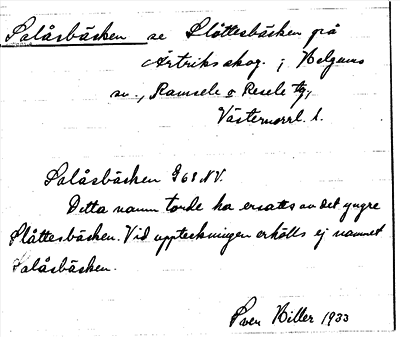 Salåsbäcken se Slåttesbäcken på
Ärtriksskog, i Helgums
sn., Ramsele o Resele tg,
Västernorrl. l.
Salåsbäcken G68NV.
Detta namn torde ha ersatts av det yngre
Slåttesbäcken. Vid uppteckningen erhölls ej namnet
Salåsbäcken.
Sven Hiller 1933